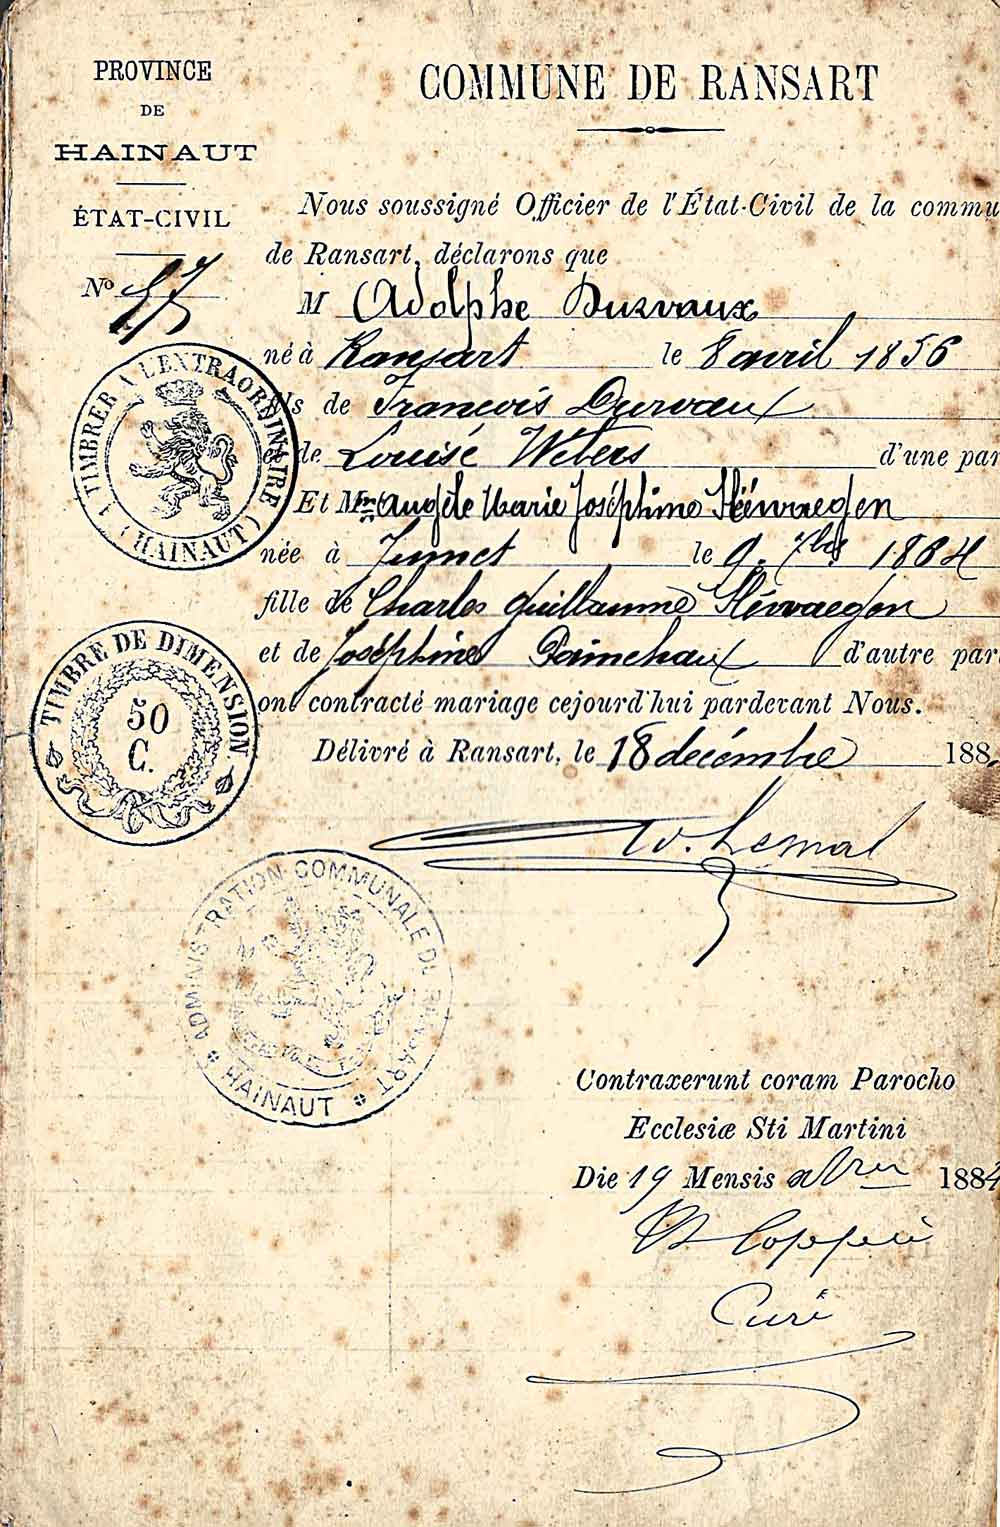 PROVINCE
DE
HAINAUT
ÉTAT-CIVIL
No 57
COMMUNE DE RANSART
Nous soussigné Officier de l'État-Civil de la commu
de Ransart, déclarons que
M Adolphe Durvaux
né à Ransart le 8 avril 1856
ls de François Durvaux
de Louise Webers d'une par
Et Melle Angèle Marie Joséphine Hénvaegen
née à Jumet le 9 7bre 1864
fille de Charles Guillaume Hénvaegen
et de Joséphine Painchaux d'autre par
ont contracté mariage cejourd'hui pardevant Nous.
Délivré à Ransart, le 18 décembre 188
TIMBRER A L'EXTRAORDINAIRE
(HAINAUT)
TIMBRE DE DIMENSION
50
C.
ADMINISTRATION COMMUNALE DE RANSART
HAINAUT
Contraxerunt coram Parocho
Ecclesiæ Sti Martini
Die 19 Mensis 1884
Curé